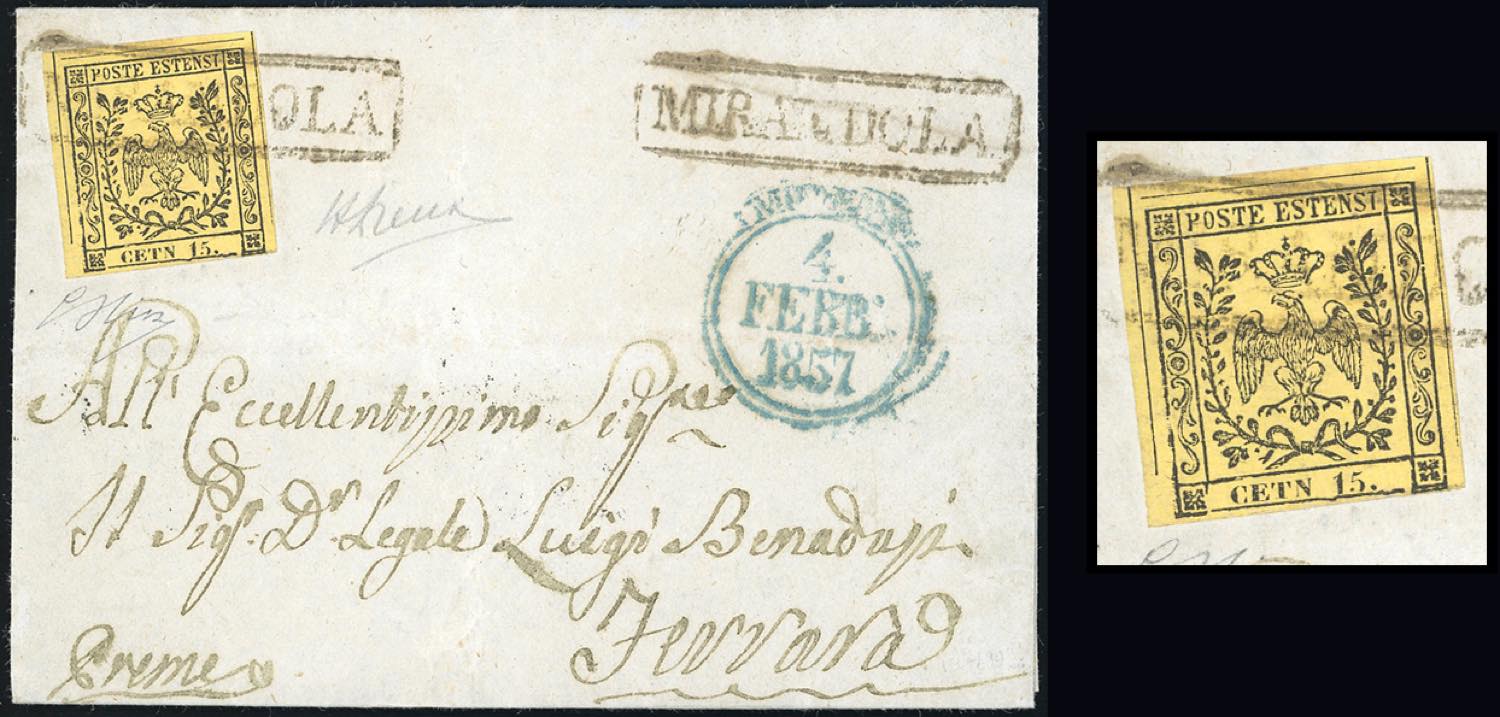 POSTE ESTENSI
CETN 15.
OLA
MIRANDOLA
4.
FEBB:
1857
All' Eccellentissimo Sig.re
Il Sig.r D.r Legale Luigi
Ferrara
Preme
POSTE ESTENSI
CETN 15.